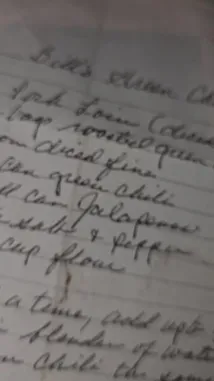 Bell's Green Ch
Pork Loin (diced
bag roasted green
diced fine
can green chili
can Jalapenos
salt & pepper
cup flour
a time, add up to
blenders of wate
chili the same